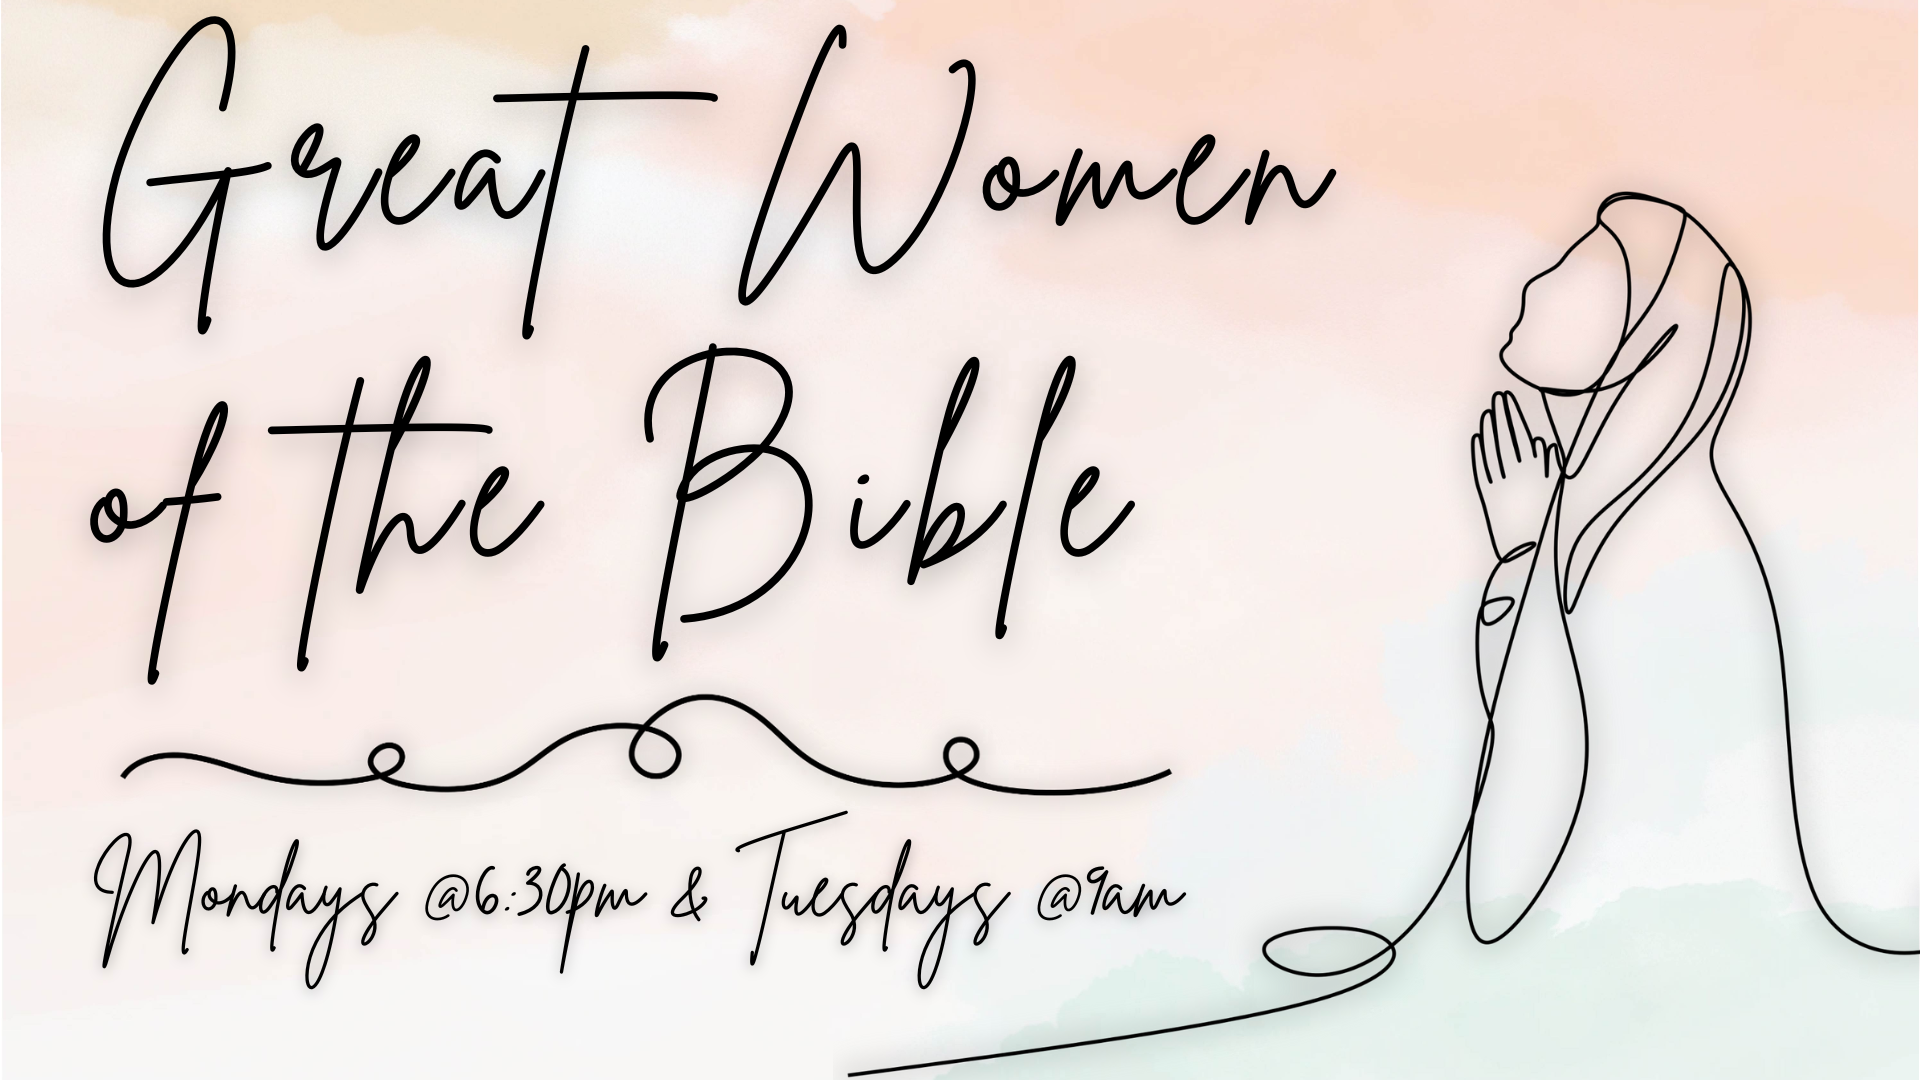 Great Women
of the Bible
Mondays @6:30pm & Tuesdays @9am